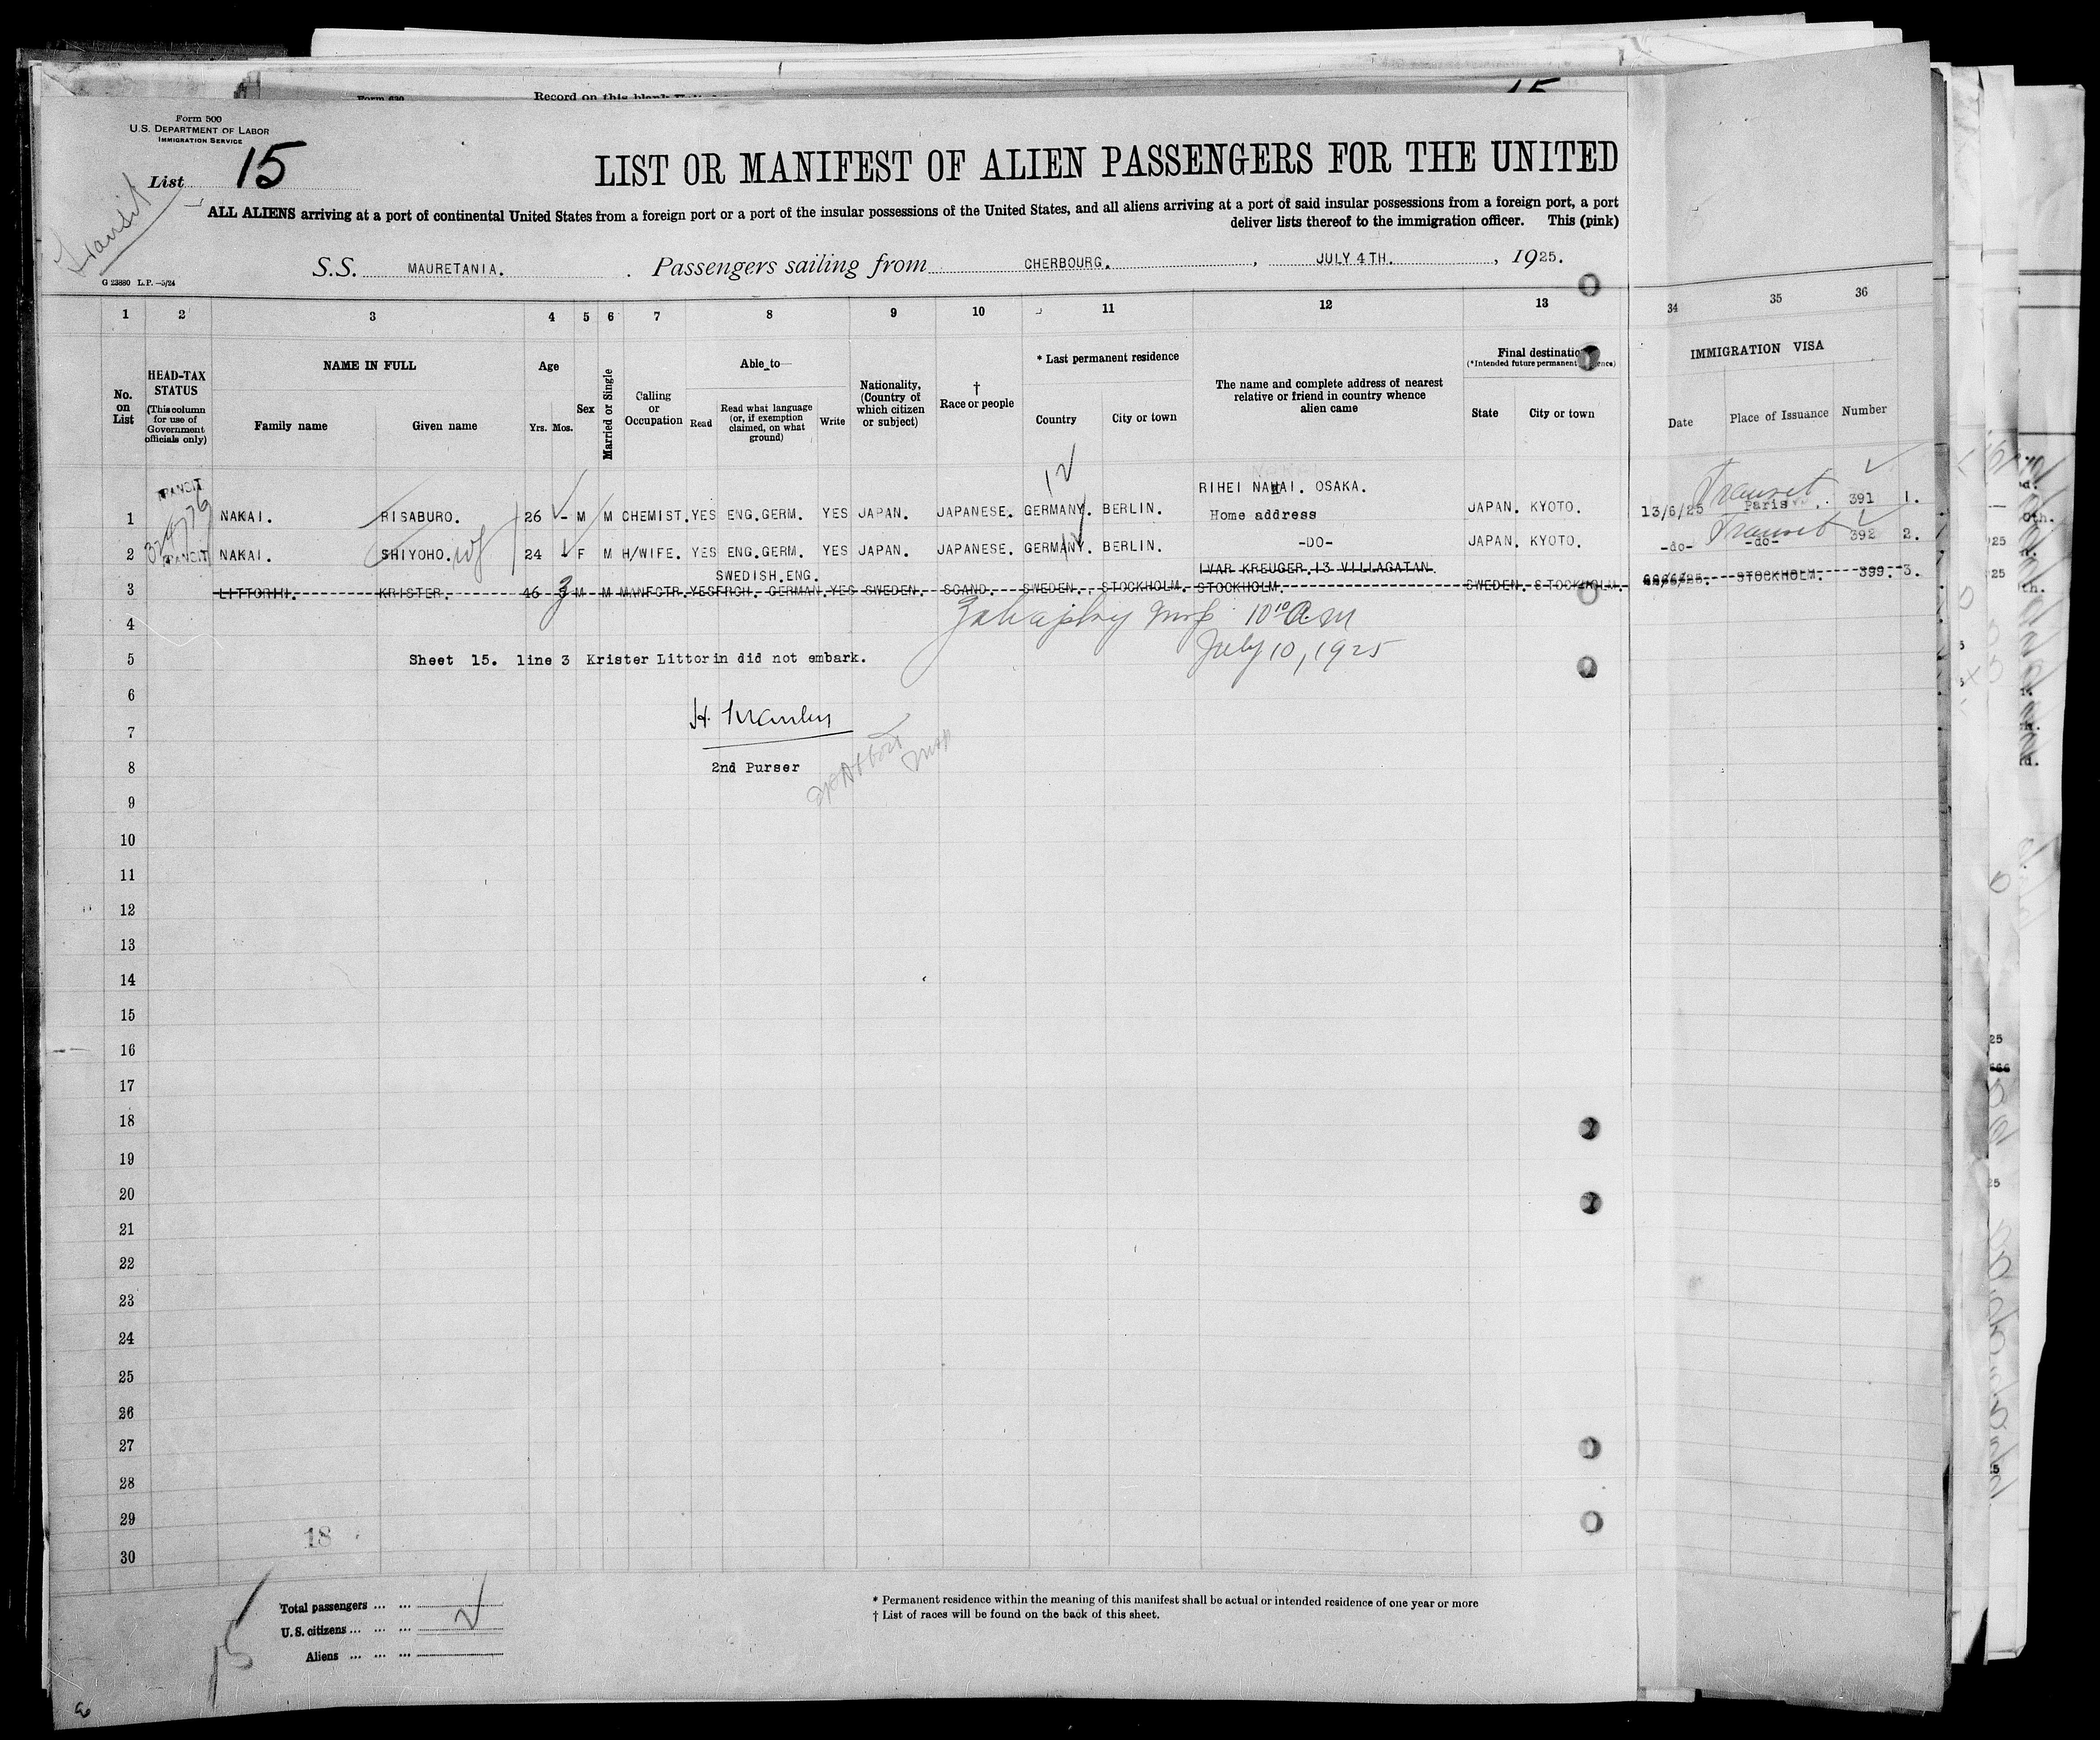 Form 630 Record on this blank
15
Form 500
U.S. DEPARTMENT OF LABOR
IMMIGRATION SERVICE
List 15
Transit
LIST OR MANIFEST OF ALIEN PASSENGERS FOR THE UNITED
ALL ALIENS arriving at a port of continental United States from a foreign port or a port of the insular possessions of the United States, and all aliens arriving at a port of said insular possessions from a foreign port, a port
deliver lists thereof to the immigration officer. This (pink)
S.S. MAURETANIA. Passengers sailing from CHERBOURG. , JULY 4TH. , 1925.
G 23880 L.P.—5/24
1 2 3 4 5 6 7 8 9 10 11 12 13 34 35 36
No. on List
HEAD-TAX STATUS
(This column for use of Government officials only)
NAME IN FULL
Family name Given name
Age
Yrs. Mos.
Sex
Married or Single
Calling or Occupation
Able to
Read
Read what language (or, if exemption claimed, on what ground)
Write
Nationality, (Country of which citizen or subject)
† Race or people
* Last permanent residence
Country City or town
The name and complete address of nearest relative or friend in country whence alien came
Final destination
(*Intended future permanent
State City or town
IMMIGRATION VISA
Date Place of Issuance Number
12
TRANSIT
RIHEI NAKAI. OSAKA.
Transit
1 NAKAI. RISABURO. 26 - M M CHEMIST. YES ENG.GERM. YES JAPAN. JAPANESE. GERMANY. BERLIN. Home address JAPAN. KYOTO. 13/6/25 Paris 391 1.
324776
Transit
2 TRANSIT NAKAI. SHIYOHO. wf 24 F M H/WIFE. YES ENG.GERM. YES JAPAN. JAPANESE. GERMANY. BERLIN. -DO- JAPAN. KYOTO. -do- -do- 392 2.
SWEDISH.ENG. IVAR KREUGER.13 VILLAGATAN.
3 LITTORIN. KRISTER. 46 M M MANFCTR. YES FRCH. GERMAN. YES SWEDEN. SCAND. SWEDEN. STOCKHOLM. STOCKHOLM. SWEDEN. STOCKHOLM. STOCKHOLM. 399. 3.
10 10 A.M
4
July 10, 1925
5 Sheet 15. line 3 Krister Littorin did not embark.
6
7
8 2nd Purser
9
10
11
12
13
14
15
16
17
18
19
20
21
22
23
24
25
26
27
28
29
18
30
Total passengers ... ...
U.S. citizens ... ... ...
Aliens ... ... ...
15
* Permanent residence within the meaning of this manifest shall be actual or intended residence of one year or more
† List of races will be found on the back of this sheet.